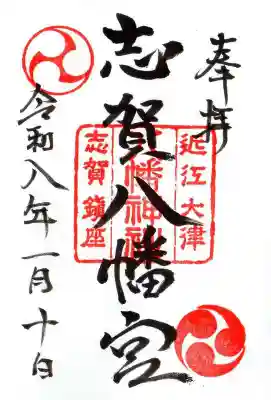 奉拝
志賀八幡宮
近江 大津
八幡神社
志賀 鎮座
令和八年一月十日